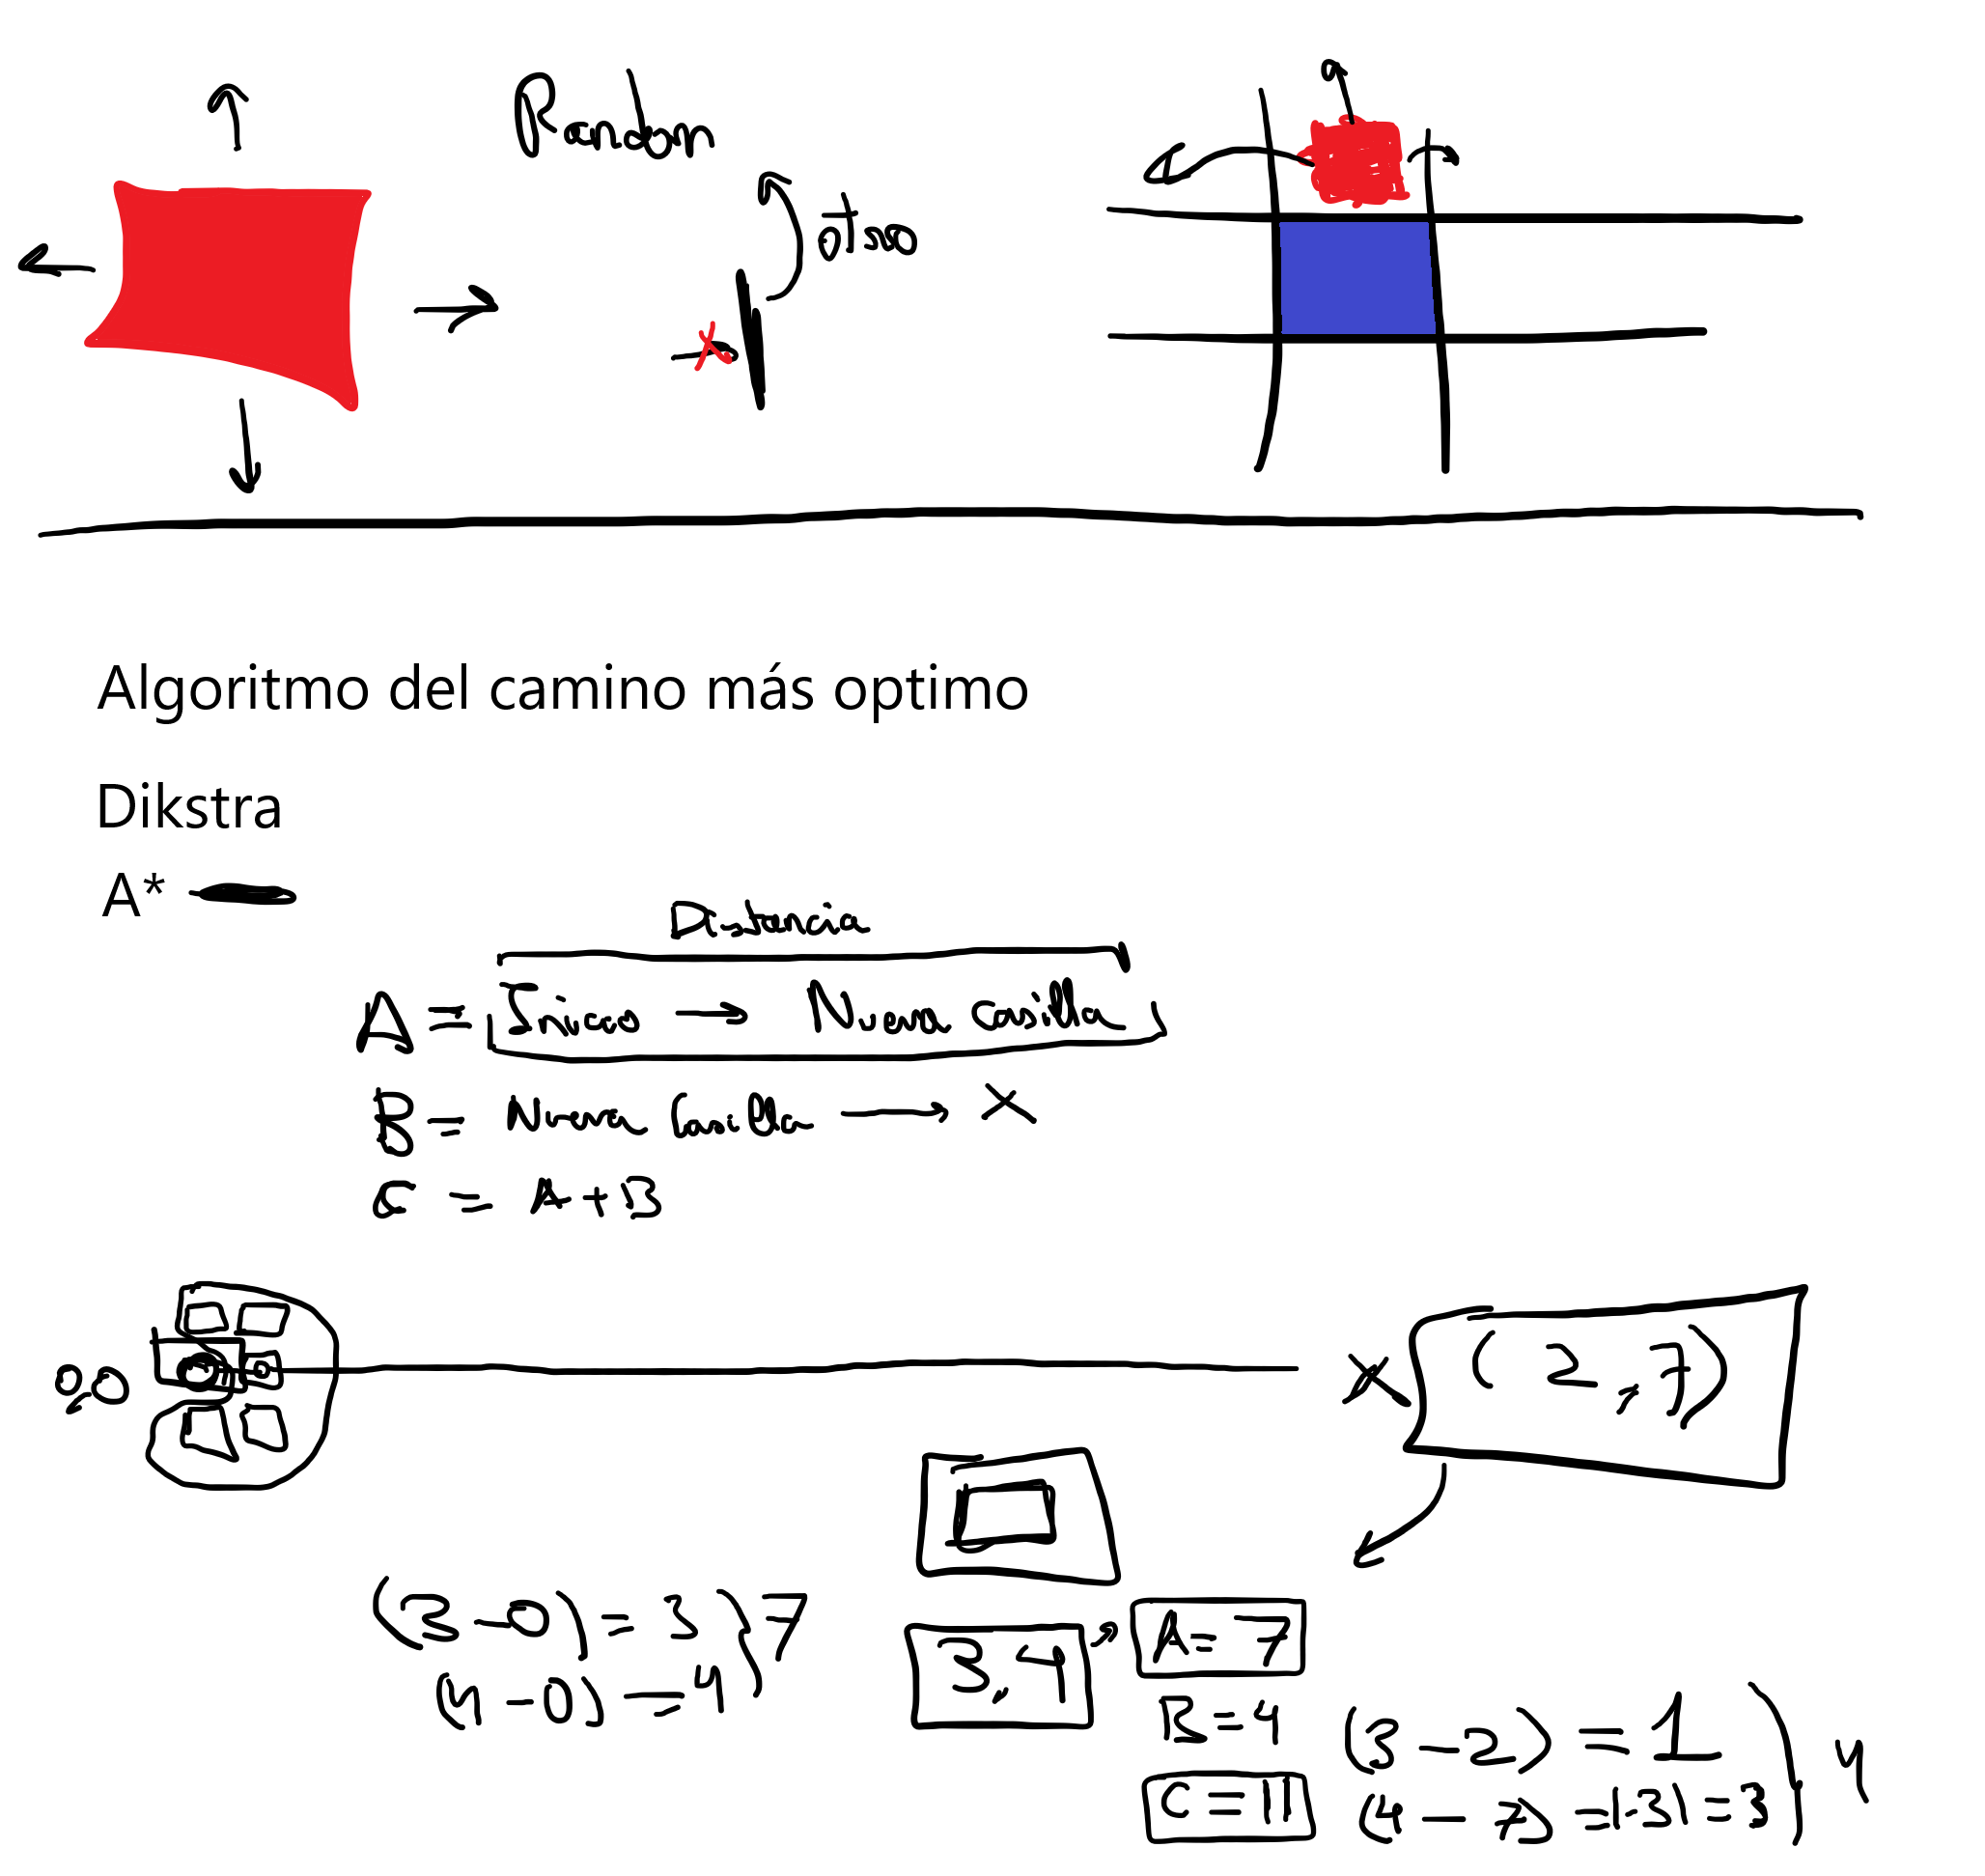 Random
otro
Algoritmo del camino más optimo
Dikstra
A*
Distancia
A = Inicio → Nueva casilla
B = Nueva Casilla → X
C = A + B
0,0
X (2,7)
(3-0) = 3 ) 7
(4-0) = 4
3,4
A = 7
B = 4
C = 11
(3-2) = 1 ) 4
(4-7) = |-3| = 3